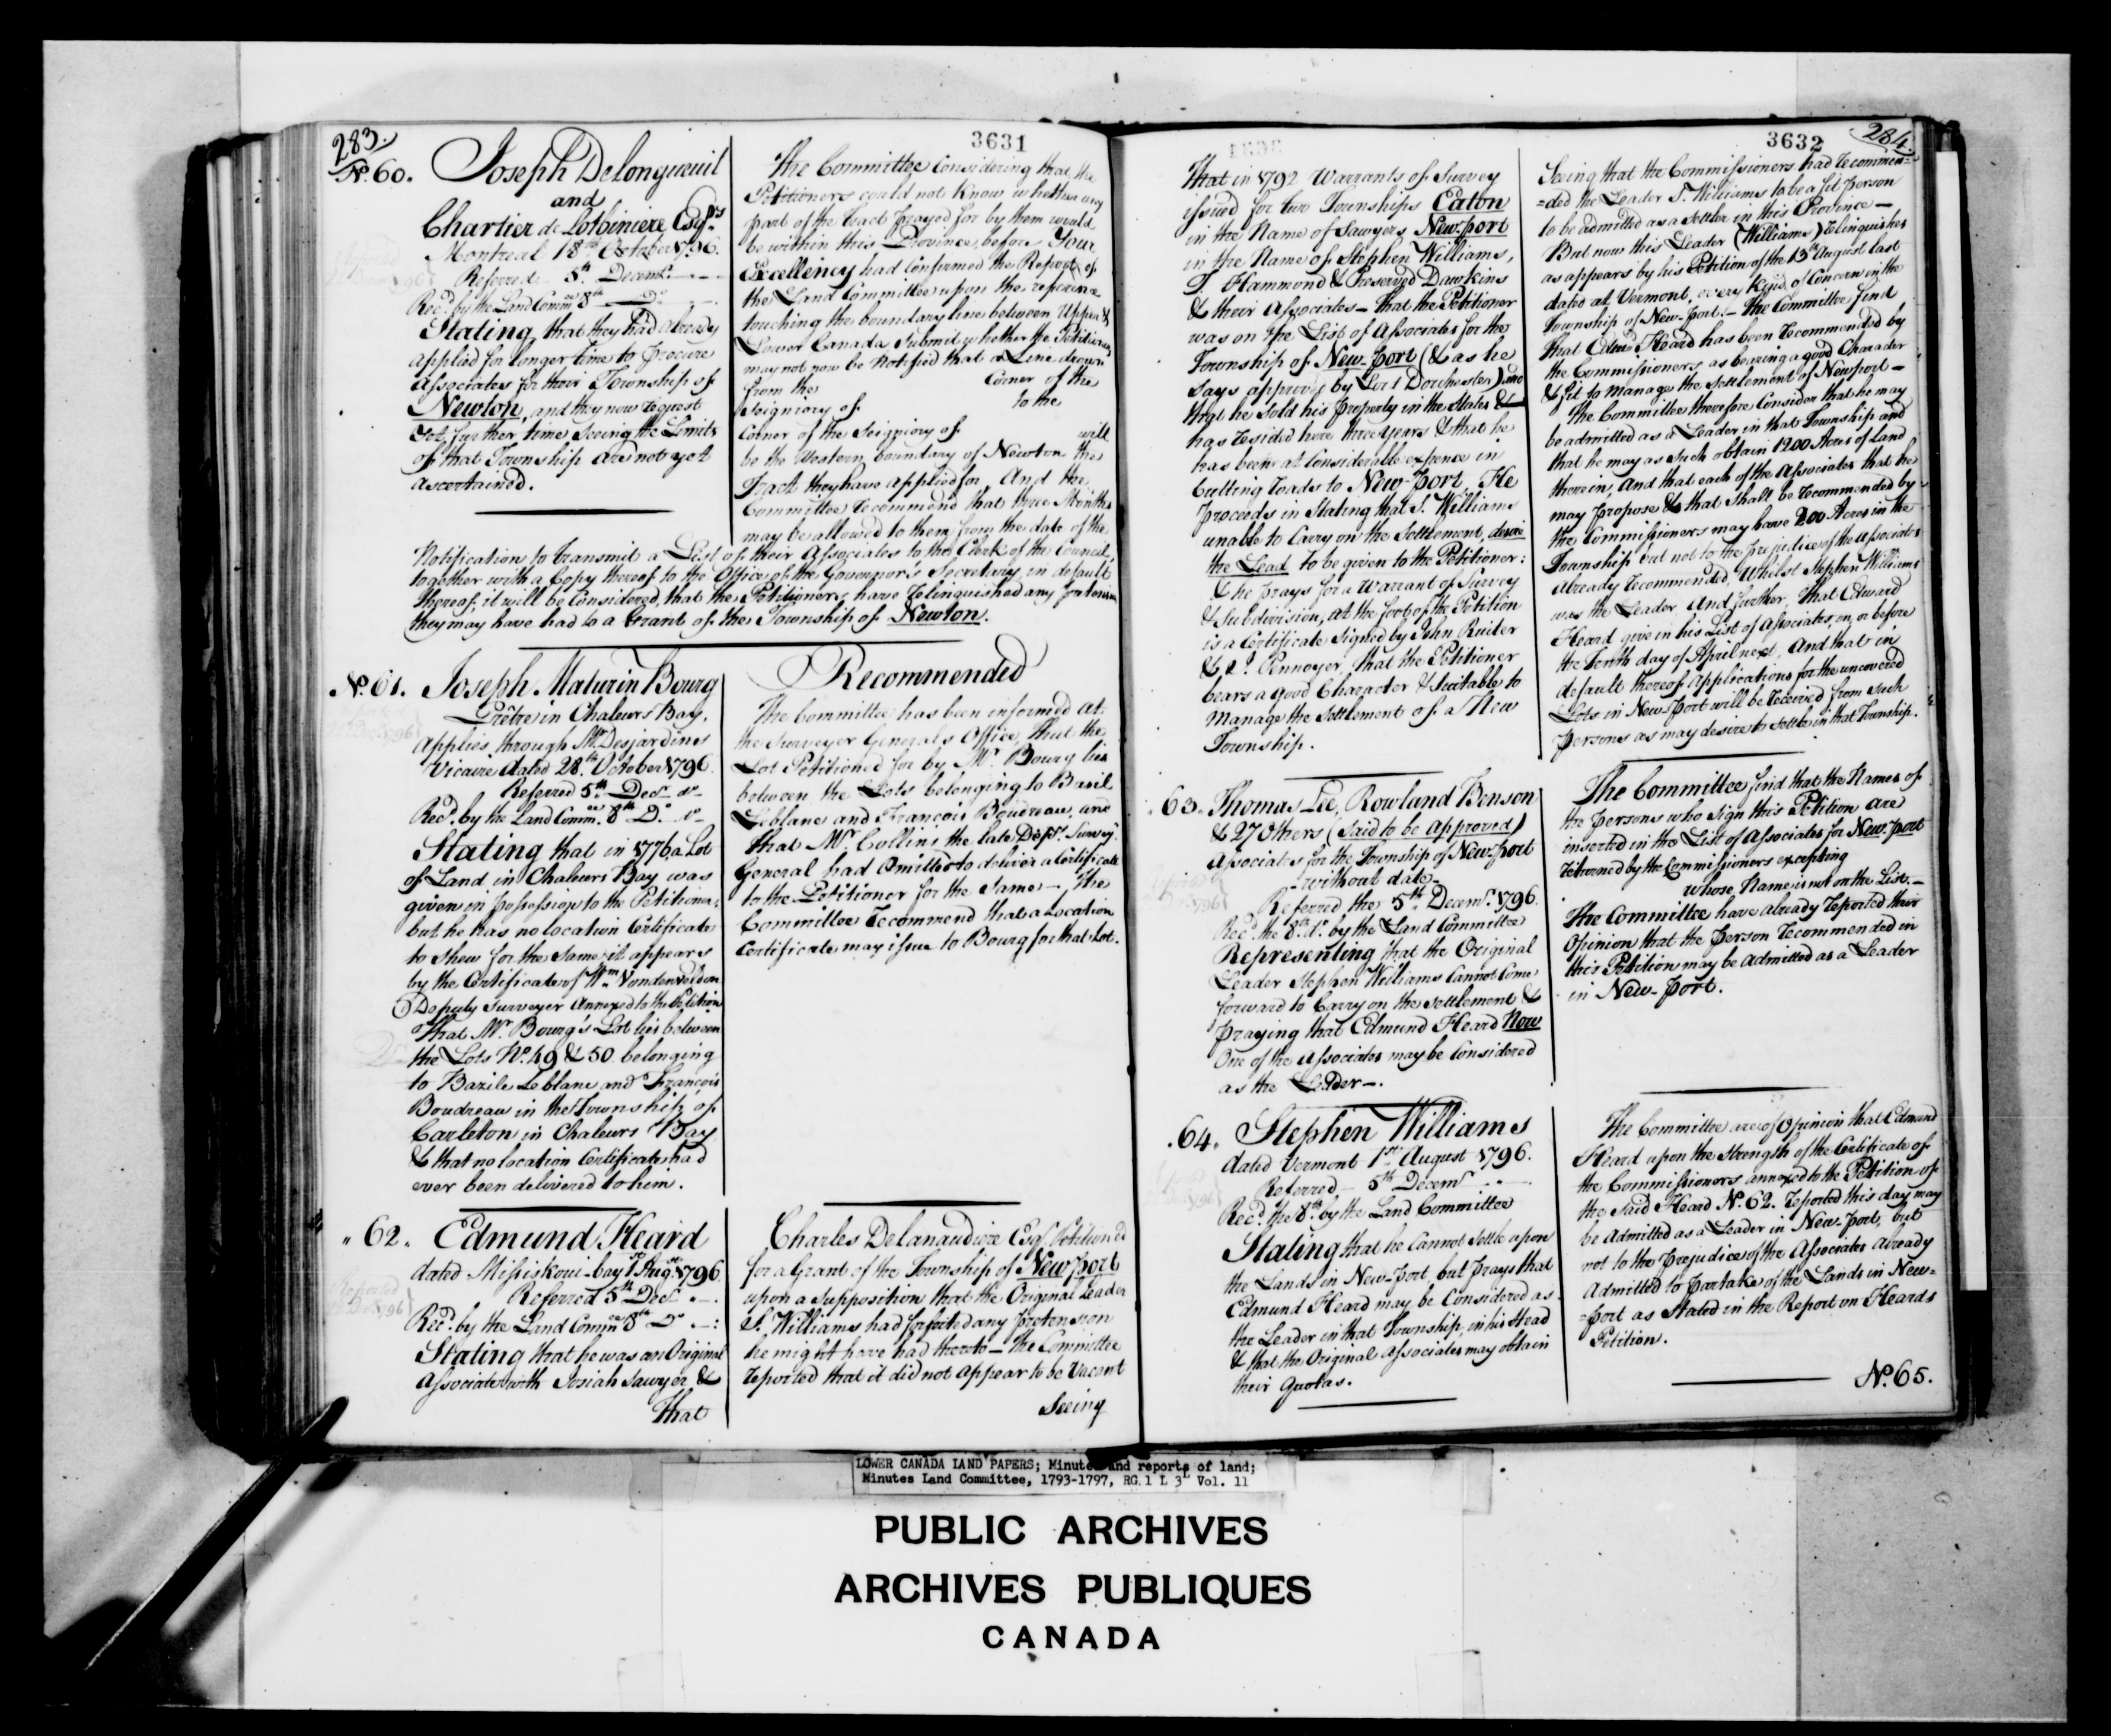 283.
3631
No. 60. Joseph Delongueuil
and
Chartier de Lotbiniere Esqrs
Montreal 18th October 1796.
Referred 5th Decemr.
Recd. by the Land Commee 8th Do
Stating, that they had already
applied for longer time to procure
Associates for their Township of
Newton, and they now request
yet further time seeing the Limits
of that Township are not yet
ascertained.
The Committee Considering that the
Petitioners could not know whether any
part of the tract prayed for by them would
be within this Province, before Your
Excellency had confirmed the Report of
the Land Committee upon the reference
touching the boundary line between Upper &
Lower Canada Submit whether the Petitioners
may not now be Notified that a Line drawn
from the Corner of the
Seigniory of to the
Corner of the Seigniory of will
be the Western boundary of Newton the
Tract they have applied for, And the
Committee recommend that three Months
may be allowed to them from the date of the
Notification to transmit a List of their Associates to the Clerk of the Council,
together with a Copy thereof to the Office of the Governor's Secretary, in default
thereof, it will be Considered, that the Petitioners have relinquished any pretension
they may have had to a Grant of the Township of Newton.
No. 61. Joseph Maturin Bourg
Prêtre in Chaleurs Bay,
Applies through Mr. Desjardines
Vicaire dated 28th October 1796.
Referred 5th Decr do
Recd. by the Land Commee 8th Do. do
Stating that in 1776, a Lot
of Land in Chaleurs Bay was
given in possession to the Petitioner,
but he has no location Certificate
to shew for the same, it appears
by the Certificate of Wm Vondenvelden
Deputy Surveyor Annexed to the Petition
that Mr. Bourg's Lot lies between
the Lots No. 49 & 50 belonging
to Bazile Leblanc and François
Boudreau in the Township of
Carleton in Chaleurs Bay
& that no location Certificate had
ever been delivered to him.
Recommended
The Committee has been informed at
the Surveyor General's Office, that the
Lot Petitioned for by Mr. Bourg lies
between the Lots belonging to Basil
Leblanc and François Boudreau, and
that Mr. Collins the late Depy. Survey.
General had Omitted to deliver a Certificate
to the Petitioner for the Same — The
Committee recommend that a Location
Certificate may issue to Bourg for that Lot.
" 62. Edmund Heard
dated Missiskoui-bay 1st Augst 1796.
Referred 5th Decr
Recd. by the Land Commee 8th Do
Stating that he was an Original
Associate with Josiah Sawyer &
That
Charles Delanaudiere Esqr. Petitioned
for a Grant of the Township of Newport
upon a Supposition that the Original Leader
S. Williams had forfeited any pretension
he might have had thereto — The Committee
reported that it did not appear to be Vacant
Seeing
3632
284.
That in 1792 Warrants of Survey
issued for two Townships Eaton
in the Name of Sawyers, New-port
in the Name of Stephen Williams,
Hammond & Preserved Dawkins
& their Associates — That the Petitioner
was on the List of Associates for the
Township of New-port (& as he
says approved by Lord Dorchester) and
that he Sold his property in the States &
has resided here three years & that he
has been at Considerable expence in
cutting roads to New-Port, He
proceeds in Stating that S. Williams
unable to Carry on the Settlement, desire
the Lead to be given to the Petitioner:
& he prays for a Warrant of Survey
& Subdivision, at the foot of the Petition
is a Certificate Signed by John Ruiter
& Pennoyer, that the Petitioner
bears a good Character & Suitable to
Manage the Settlement of a New
Township.
Seeing that the Commissioners had recommen=
=ded the Leader S. Williams to be a fit person
to be admitted as a Settler in this Province —
But now this Leader (Williams) relinquishes
as appears by his Petition of the 13th August last
dated at Vermont, every kind of Concern in the
Township of New-Port. — The Committee find
that Edmd Heard has been recommended by
the Commissioners, as bearing a good Character
& fit to manage the Settlement of Newport —
The Committee therefore Consider that he may
be admitted as a Leader in that Township and
that he may as such obtain 1200 Acres of Land
therein, And that each of the Associates that he
may propose & that shall be recommended by
the Commissioners may have 200 Acres in the
Township but not to the prejudice of the Associates
Already recommended, Whilst Stephen Williams
was the Leader And further, that Edward
Heard give in his List of Associates, on or before
the tenth day of April next, And that in
default thereof Applications for the uncovered
Lots in New-Port will be received from such
persons as may desire to settle in that Township.
63. Thomas Lee, Rowland Benson
& 27 Others (Said to be Approved)
Associates for the Township of New-port
- without date -
Referred the 5th Decemr. 1796.
Recd. the 8th do. by the Land Committee
Representing that the Original
Leader Stephen Williams Cannot Come
forward to Carry on the Settlement &
praying that Edmund Heard Now
One of the Associates may be Considered
as the Leader —.
The Committee find that the Names of
the persons who sign this Petition are
inserted in the List of Associates for New-port
returned by the Commissioners excepting
whose Name is not on the List. —
The Committee have already reported their
Opinion that the person recommended in
this Petition may be Admitted as a Leader
in New-port.
.64. Stephen Williams
dated Vermont 1st August 1796.
Referred 5th Decemr
Recd. the 8th by the Land Committee
Stating that he cannot Settle upon
the Lands in New-Port, but prays that
Edmund Heard may be Considered as
the Leader in that Township, in his Stead
& that the Original Associates may obtain
their Quotas.
The Committee are of Opinion that Edmund
Heard upon the strength of the Certificate of
the Commissioners annexed to the Petition of
the Said Heard No. 62. reported this day may
be Admitted as a Leader in New-Port, but
not to the Prejudice of the Associates Already
Admitted to partake of the Lands in New=
=port as Stated in the Report on Heards
Petition.
No. 65.
LOWER CANADA LAND PAPERS; Minutes and reports of land;
Minutes Land Committee, 1793-1797, RG.1 L 3L Vol. 11
PUBLIC ARCHIVES
ARCHIVES PUBLIQUES
CANADA